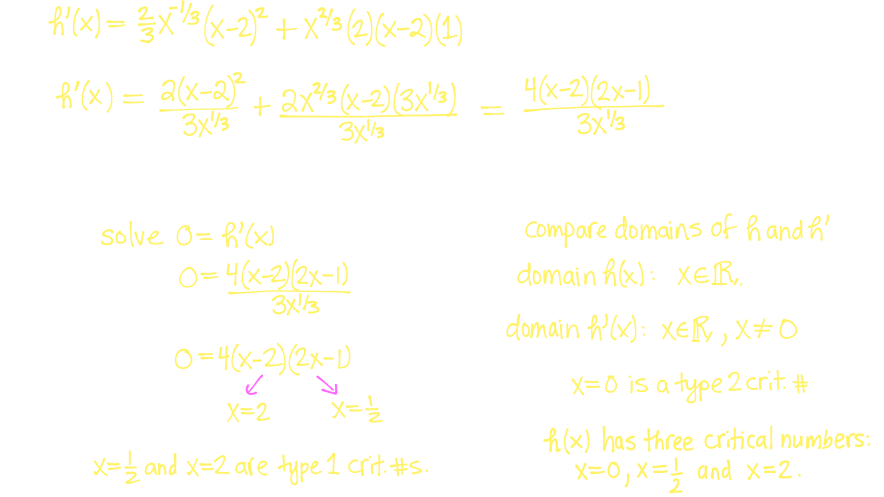 h'(x) = 2/3 x^(-1/3) (x-2)² + x^(2/3) (2)(x-2)(1)
h'(x) = 2(x-2)²/3x^(1/3) + 2x^(2/3)(x-2)(3x^(1/3))/3x^(1/3) = 4(x-2)(2x-1)/3x^(1/3)
solve 0 = h'(x)
0 = 4(x-2)(2x-1)/3x^(1/3)
0 = 4(x-2)(2x-1)
x=2 x=1/2
x=1/2 and x=2 are type 1 crit. #s.
compare domains of h and h'
domain h(x): x∈ℝ.
domain h'(x): x∈ℝ, x≠0
x=0 is a type 2 crit. #
h(x) has three critical numbers:
x=0, x=1/2 and x=2.